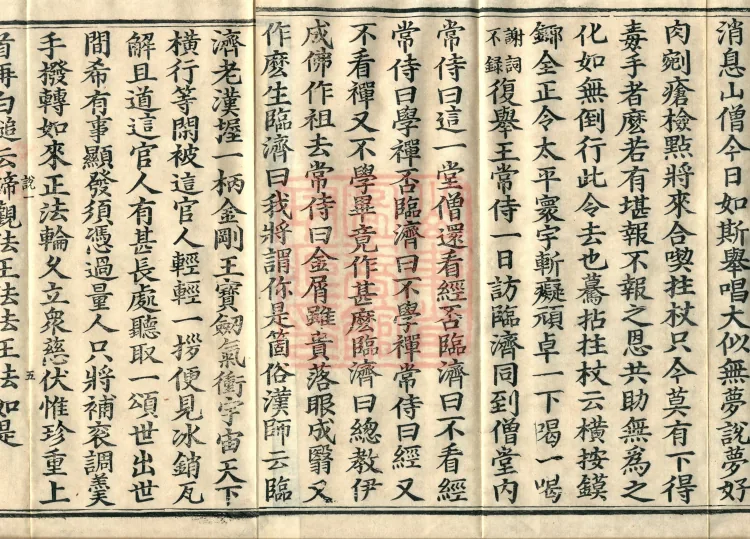 消息山僧今日如斯舉唱大似無夢說夢好
肉剜瘡檢點將來合喫拄杖只今莫有下得
毒手者麽若有堪報不報之恩共助無爲之
化如無倒行此令去也驀拈拄杖云橫按鏌
鎁全正令太平寰宇斬癡頑卓一下喝一喝
謝詞不錄復舉王常侍一日訪臨濟同到僧堂內
常侍曰這一堂僧還看經否臨濟曰不看經
常侍曰學禪否臨濟曰不學禪常侍曰經又
不看禪又不學畢竟作甚麽臨濟曰總教伊
成佛作祖去常侍曰金屑雖貴落眼成翳又
作麽生臨濟曰我將謂你是箇俗漢師云臨
濟老漢握一柄金剛王寶劒氣衝宇宙天下
橫行等閑被這官人輕輕一拶便見冰銷瓦
解且道這官人有甚長處聽取一頌世出世
間希有事顯發須憑過量人只將補袞調羹
手撥轉如來正法輪久立衆慈伏惟珍重上
說一 五
首再白槌云諦觀法王法法王法如是